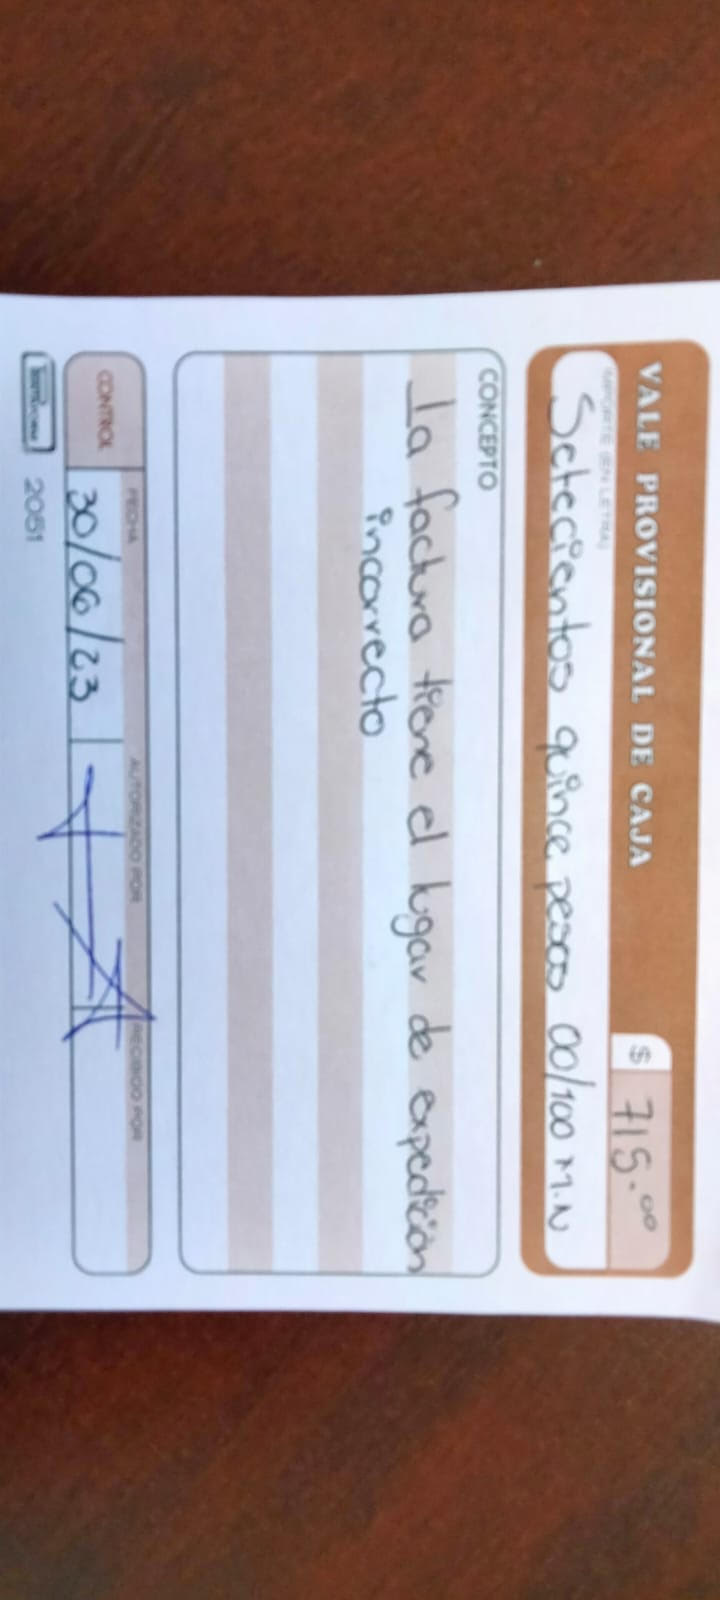 VALE PROVISIONAL DE CAJA
$ 715.00
IMPORTE (EN LETRA)
Setecientos quince pesos 00/100 M.N
CONCEPTO
la factura tiene el lugar de expedición
incorrecto
CONTROL
FECHA
AUTORIZADO POR
RECIBIDO POR
30/06/23
2051